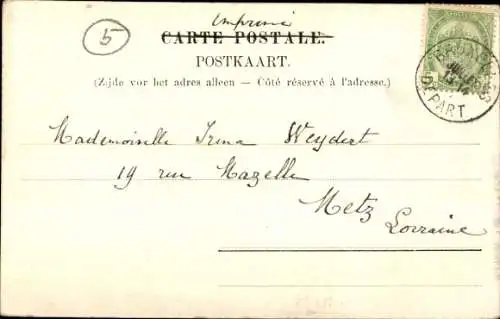 Imprimé
5
CARTE POSTALE.
POSTKAART.
(Zijde vor het adres alleen — Côté réservé à l'adresse.)
DEPART
Mademoiselle Irma Weydert
19 rue Mazelle
Metz
Lorraine